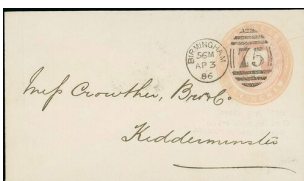 BIRMINGHAM
56M
AP 3
86
75
Messrs Crowther, Bro & Co.
Kidderminster